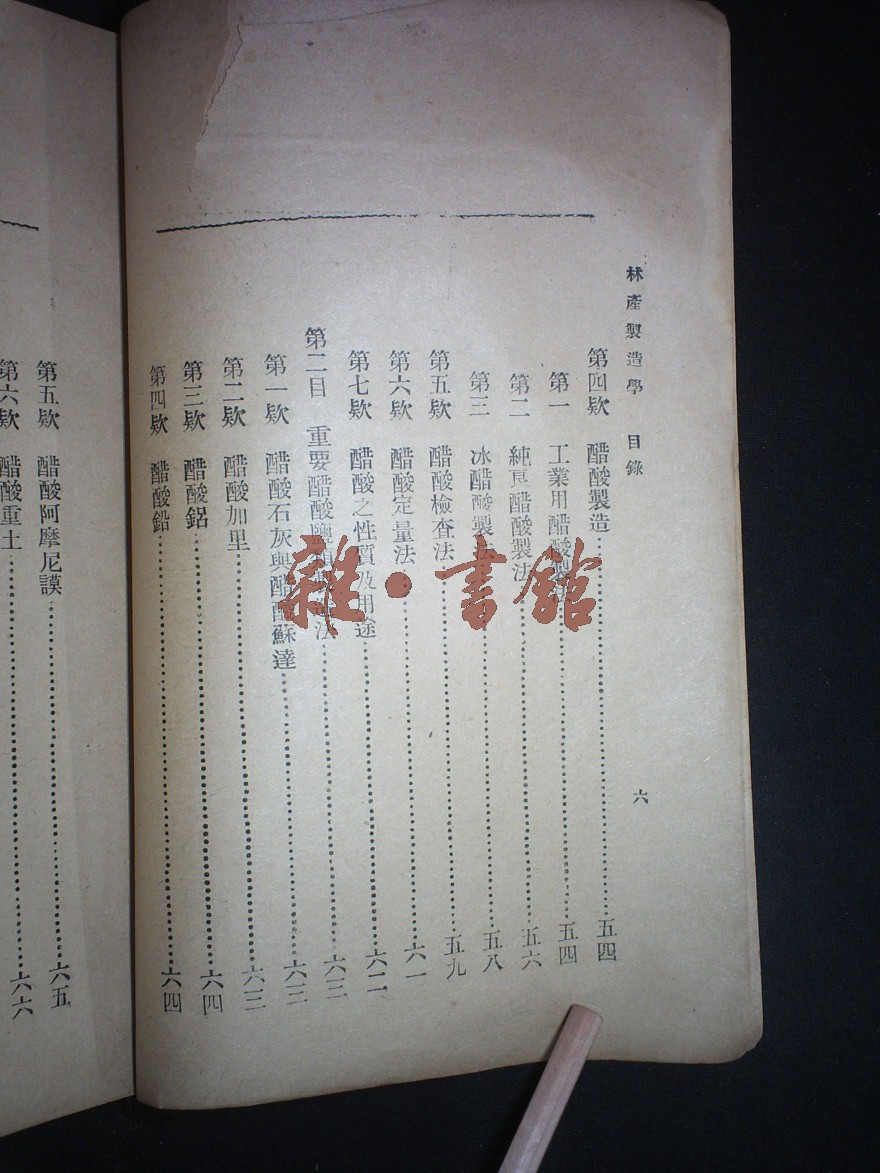 林產製造學 目錄 六
第四欵 醋酸製造 五四
第一 工業用醋酸製法 五四
第二 純良醋酸製法 五六
第三 冰醋酸製法 五八
第五欵 醋酸檢查法 五九
第六欵 醋酸定量法 六一
第七欵 醋酸之性質及用途 六二
第二目 重要醋酸鹽類製造法 六三
第一欵 醋酸石灰與醋酸蘇達 六三
第二欵 醋酸加里 六三
第三欵 醋酸鋁 六四
第四欵 醋酸鉛 六四
第五欵 醋酸阿摩尼謨 六五
第六欵 醋酸重土 六六
雜·書館